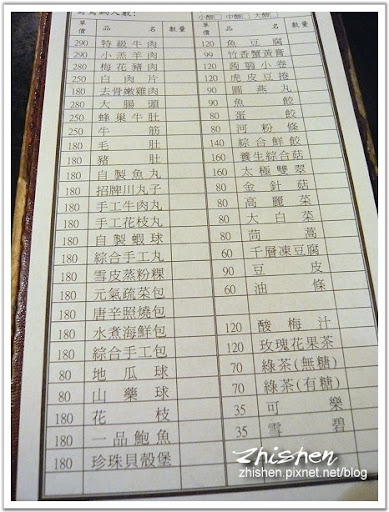 小辣 中辣 大辣
單價 品名 數量
290 特級牛肉
290 小羔羊肉
280 梅花豬肉
250 白肉片
180 去骨嫩雞肉
280 大腸頭
250 蜂巢牛肚
250 牛筋
180 毛肚
180 豬肚
180 自製魚丸
180 招牌川丸子
180 手工牛肉丸
180 手工花枝丸
180 自製蝦球
180 綜合手工丸
180 雪皮蒸粉粿
180 元氣蔬菜包
180 唐辛照燒包
180 水煮海鮮包
180 綜合手工包
80 地瓜球
80 山藥球
180 花枝
180 一品鮑魚
180 珍珠貝殼堡
單價 品名 數量
120 魚豆腐
99 竹香蟹黃膏
120 蒟蒻小卷
120 虎皮豆捲
90 圓燕丸
90 魚餃
80 蛋餃
80 河粉條
140 綜合鮮餃
160 養生綜合菇
160 太極雙翠
80 金針菇
80 高麗菜
80 大白菜
80 茼蒿
60 千層凍豆腐
90 豆皮
60 油條
120 酸梅汁
120 玫瑰花果茶
70 綠茶(無糖)
70 綠茶(有糖)
35 可樂
35 雪碧
zhishen
zhishen.pixnet.net/blog